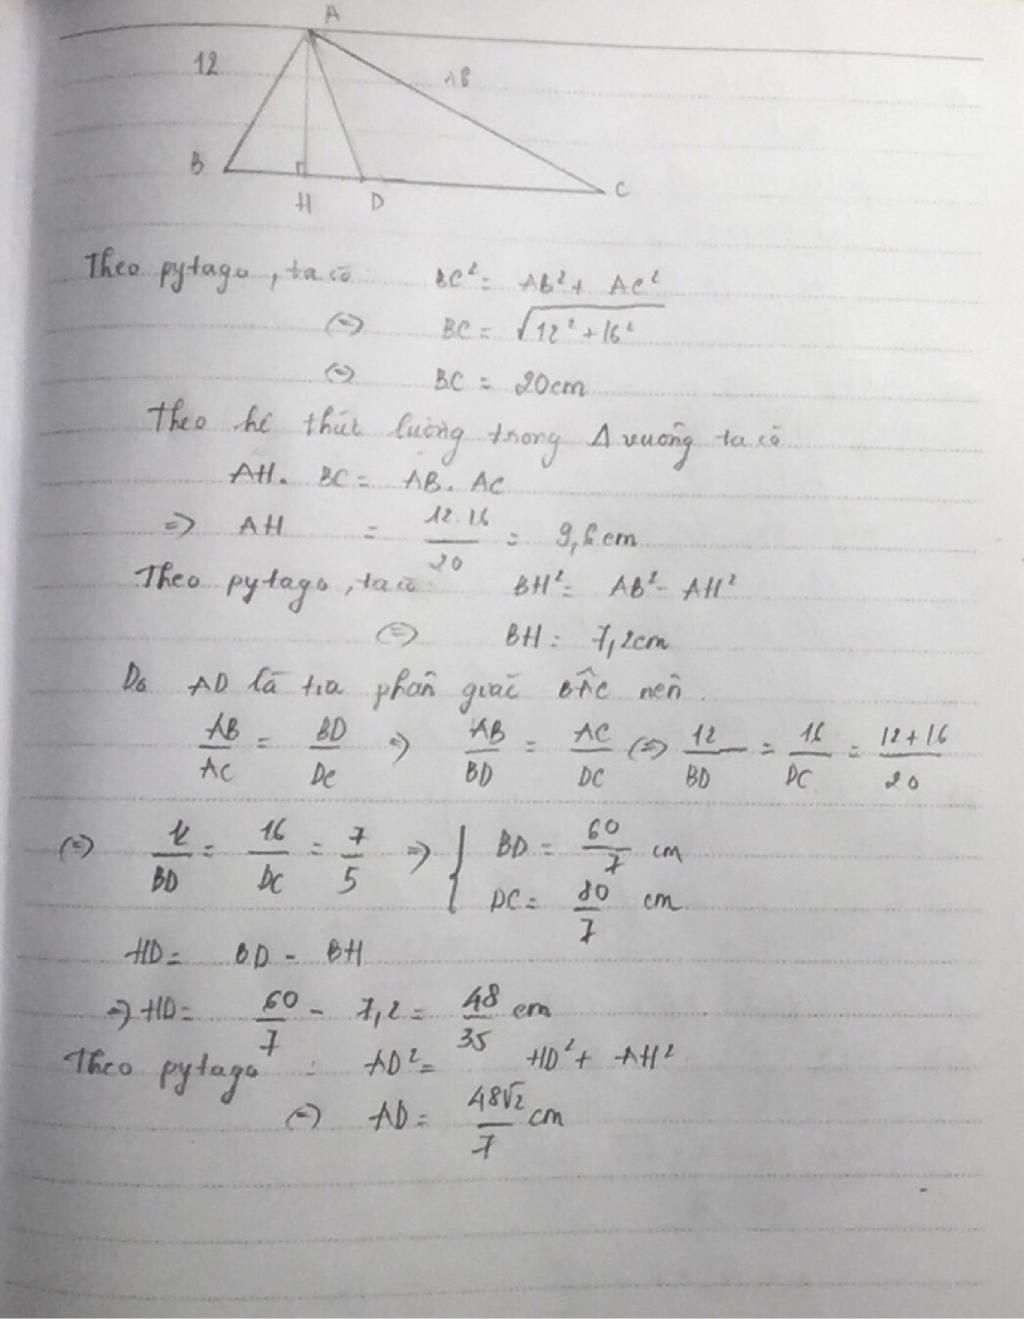 A
12
B
H D
C
Theo pytago, ta có BC² = AB² + AC²
(=) BC = √12² + 16²
(=) BC = 20cm
Theo hê thức lường trong Δ vuông ta có
AH. BC = AB. AC
=> AH = 12.16/20 = 9,6cm
Theo pytago, ta có: BH² = AB² - AH²
(=) BH = 7,2cm
Do AD là tia phân giác BÂC nên
AB/AC = BD/DC => AB/BD = AC/DC (=) 12/BD = 16/DC = 12+16/20
(=) 12/BD = 16/DC = 7/5 => { BD = 60/7 cm
DC = 80/7 cm
HD = BD - BH
=> HD = 60/7 - 7,2 = 48/35 cm
Theo pytago : AD² = HD² + AH²
(=) AD = 48√2/7 cm